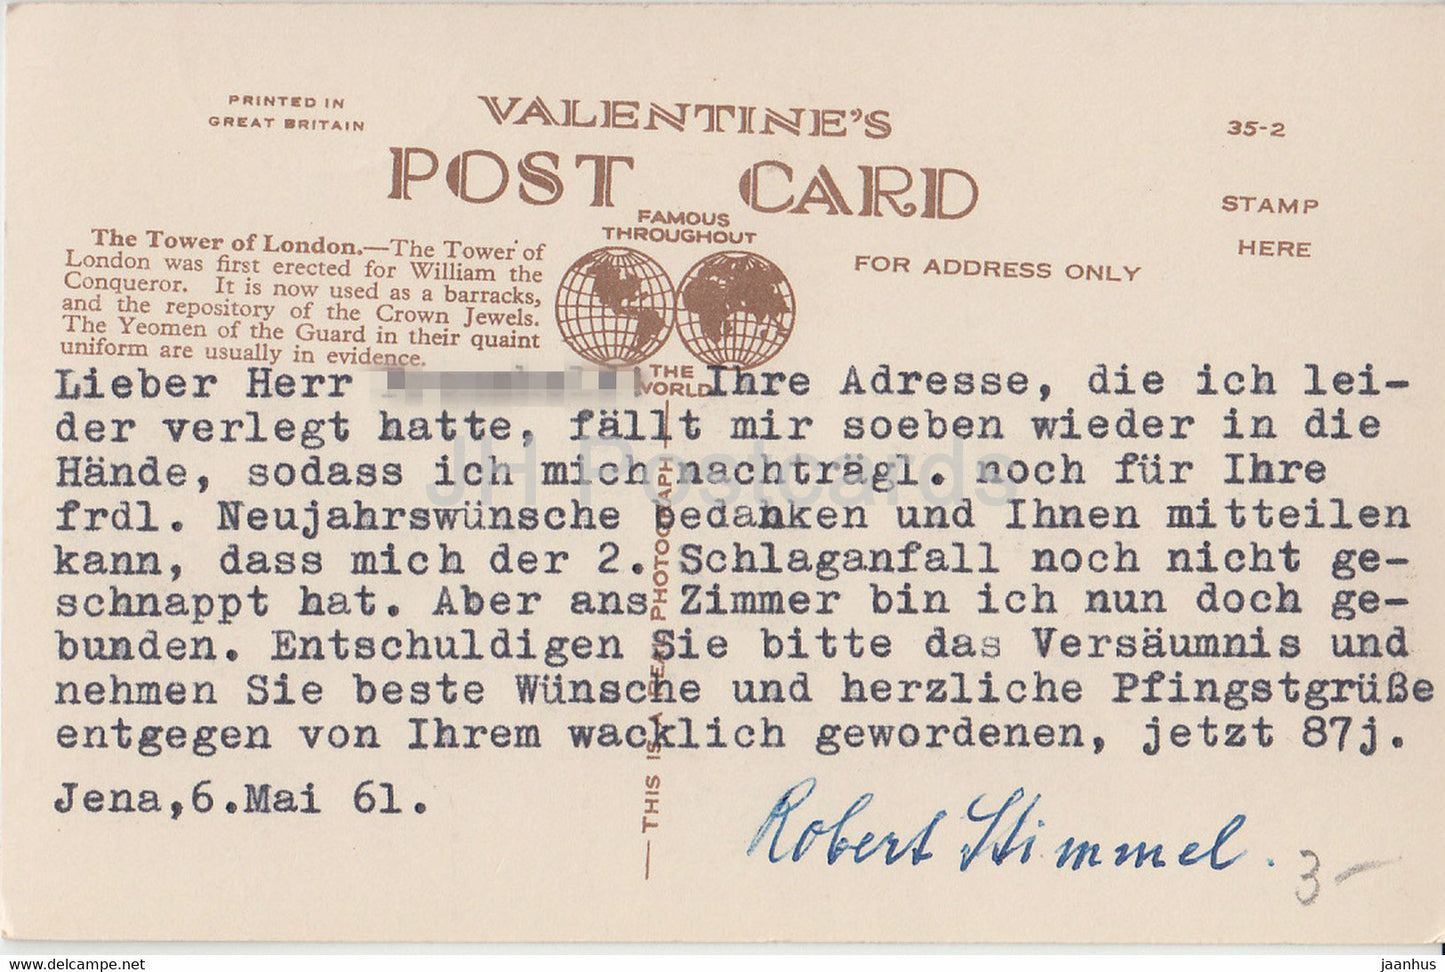 PRINTED IN
GREAT BRITAIN
VALENTINE'S
POST CARD
35-2
STAMP
HERE
FAMOUS
THROUGHOUT
THE
WORLD
FOR ADDRESS ONLY
The Tower of London.—The Tower of
London was first erected for William the
Conqueror. It is now used as a barracks,
and the repository of the Crown Jewels.
The Yeomen of the Guard in their quaint
uniform are usually in evidence.
Lieber Herr Ihre Adresse, die ich lei-
der verlegt hatte, fällt mir soeben wieder in die
Hände, sodass ich mich nachträgl. noch für Ihre
frdl. Neujahrswünsche bedanken und Ihnen mitteilen
kann, dass mich der 2. Schlaganfall noch nicht ge-
schnappt hat. Aber ans Zimmer bin ich nun doch ge-
bunden. Entschuldigen Sie bitte das Versäumnis und
nehmen Sie beste Wünsche und herzliche Pfingstgrüße
entgegen von Ihrem wacklich gewordenen, jetzt 87j.
Jena,6.Mai 61.
Robert Stimmel.
3-
— THIS IS A REAL PHOTOGRAPH —
JH Postcards
www.delcampe.net
jaanhus